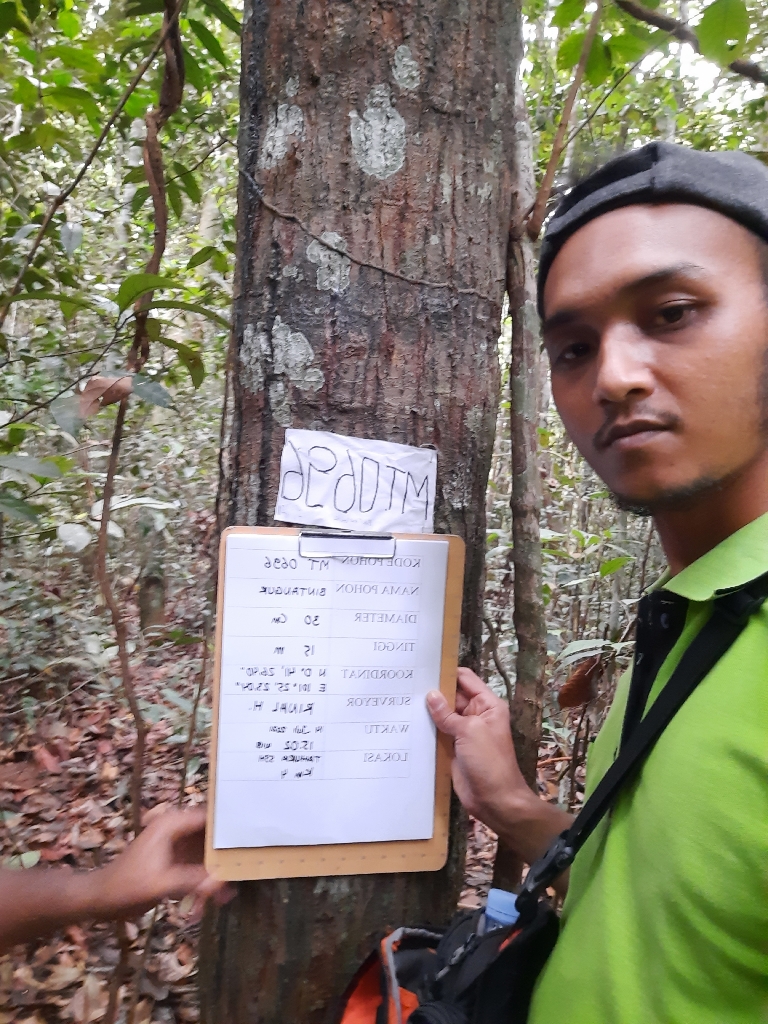 MT0696
KODE POHON MT 0696
NAMA POHON BINTANGUR
DIAMETER 30 Cm
TINGGI 15 m
KOORDINAT N 0° 41' 26.40"
E 101° 25' 25.04"
SURVEYOR RINAL H.
WAKTU 14 Juli 2021
15.02 WIB
LOKASI TAHURA SSH
KM 4